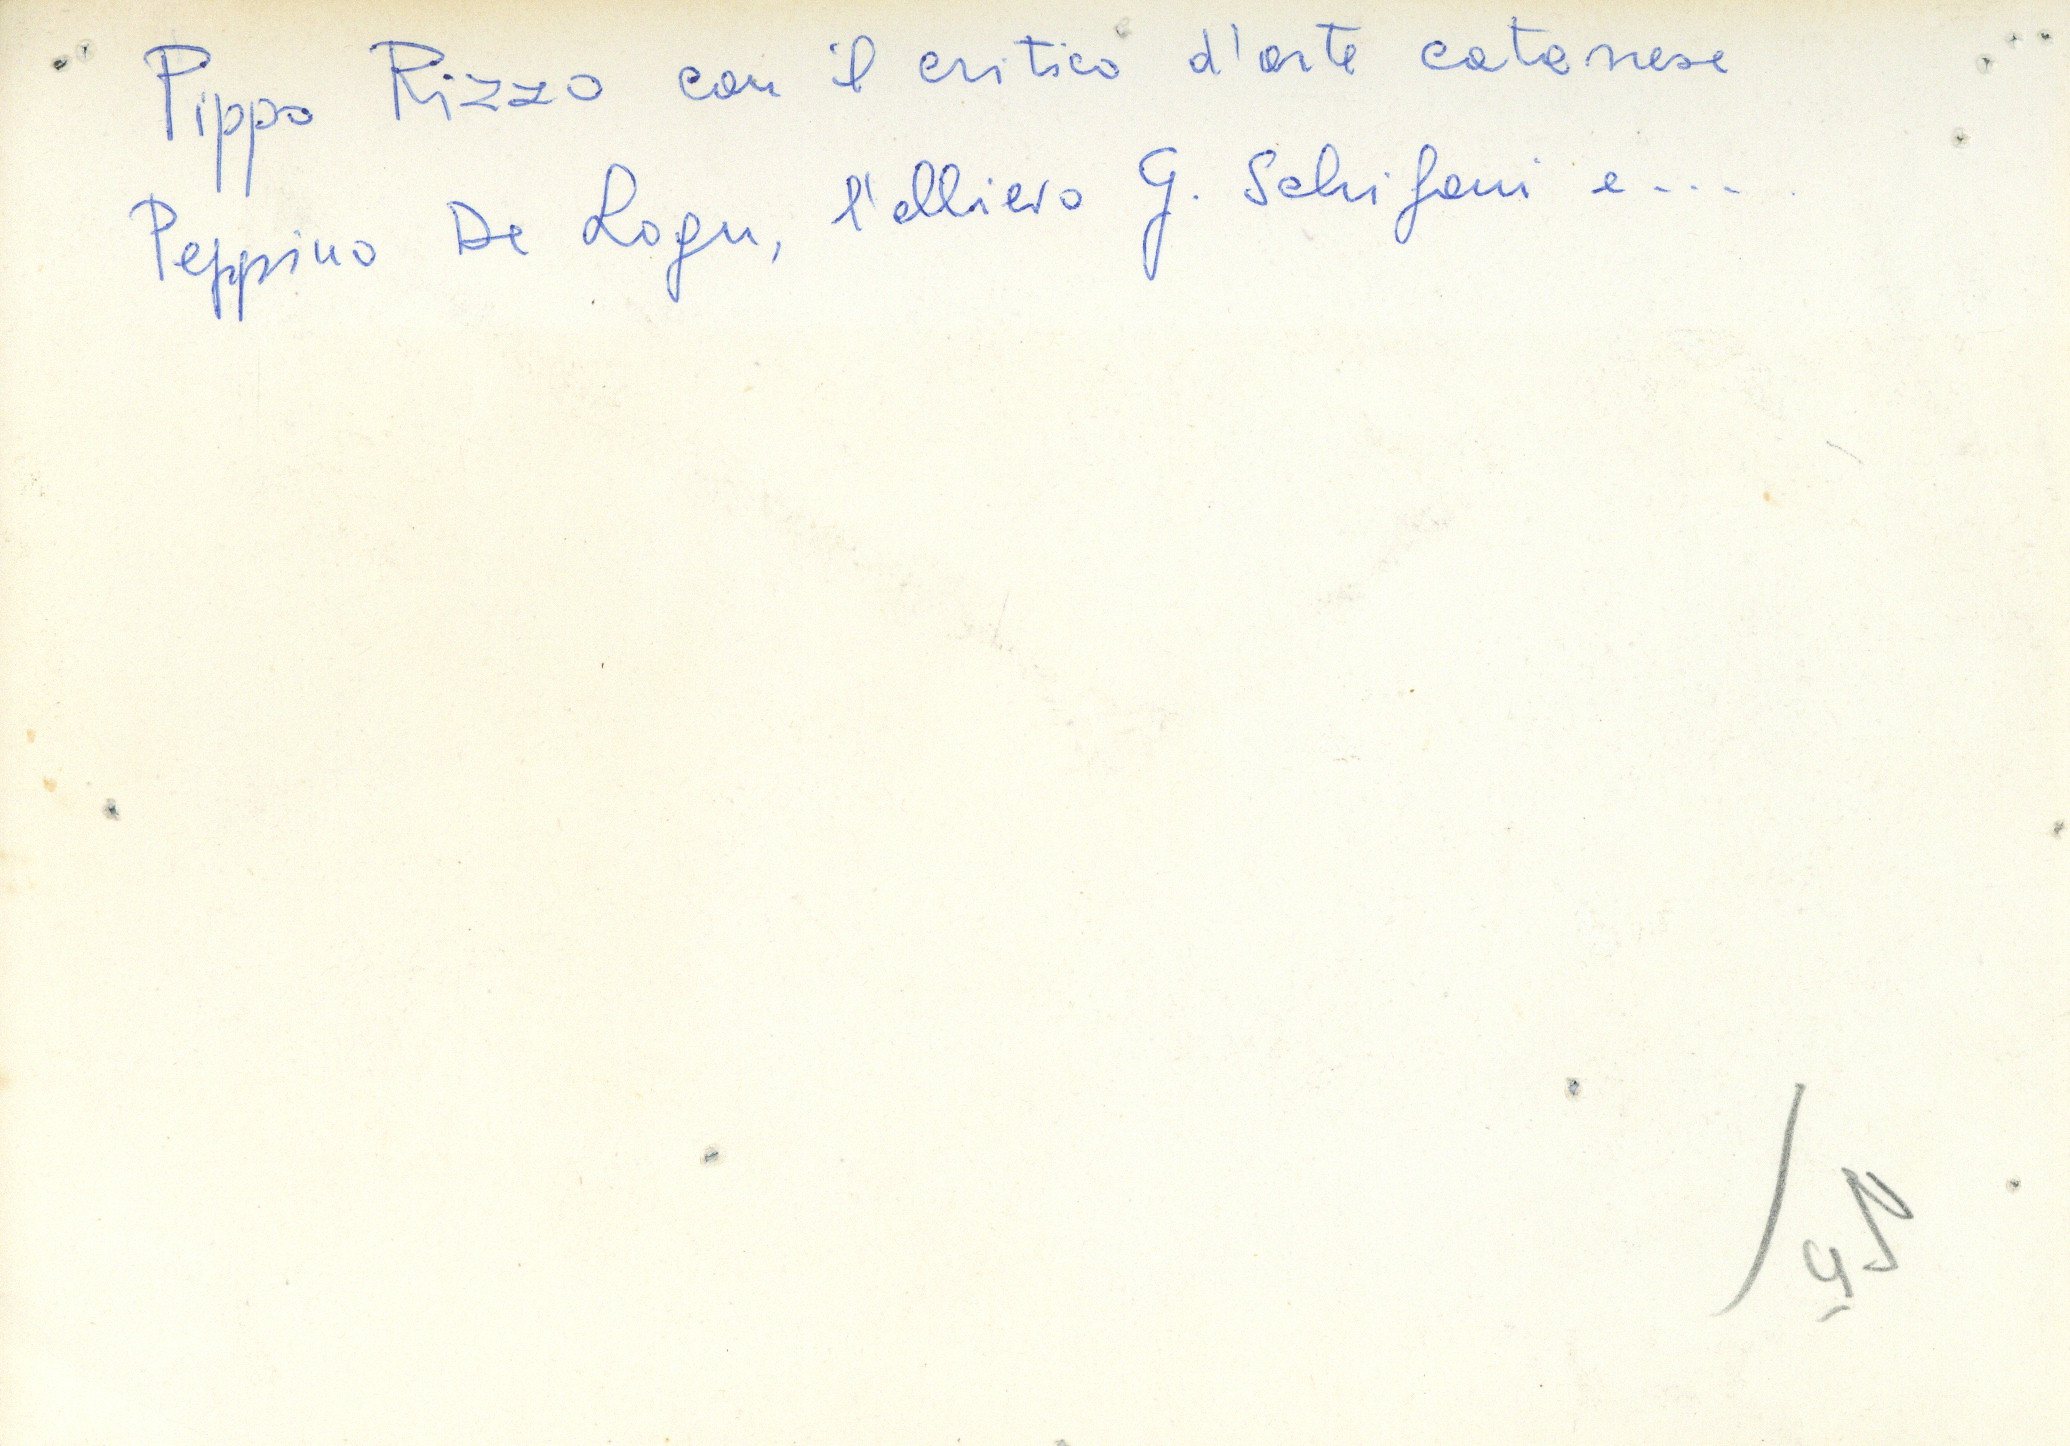 Pippo Rizzo con il critico d'arte catanese
Peppino De Logu, l'allievo G. Schifani e....